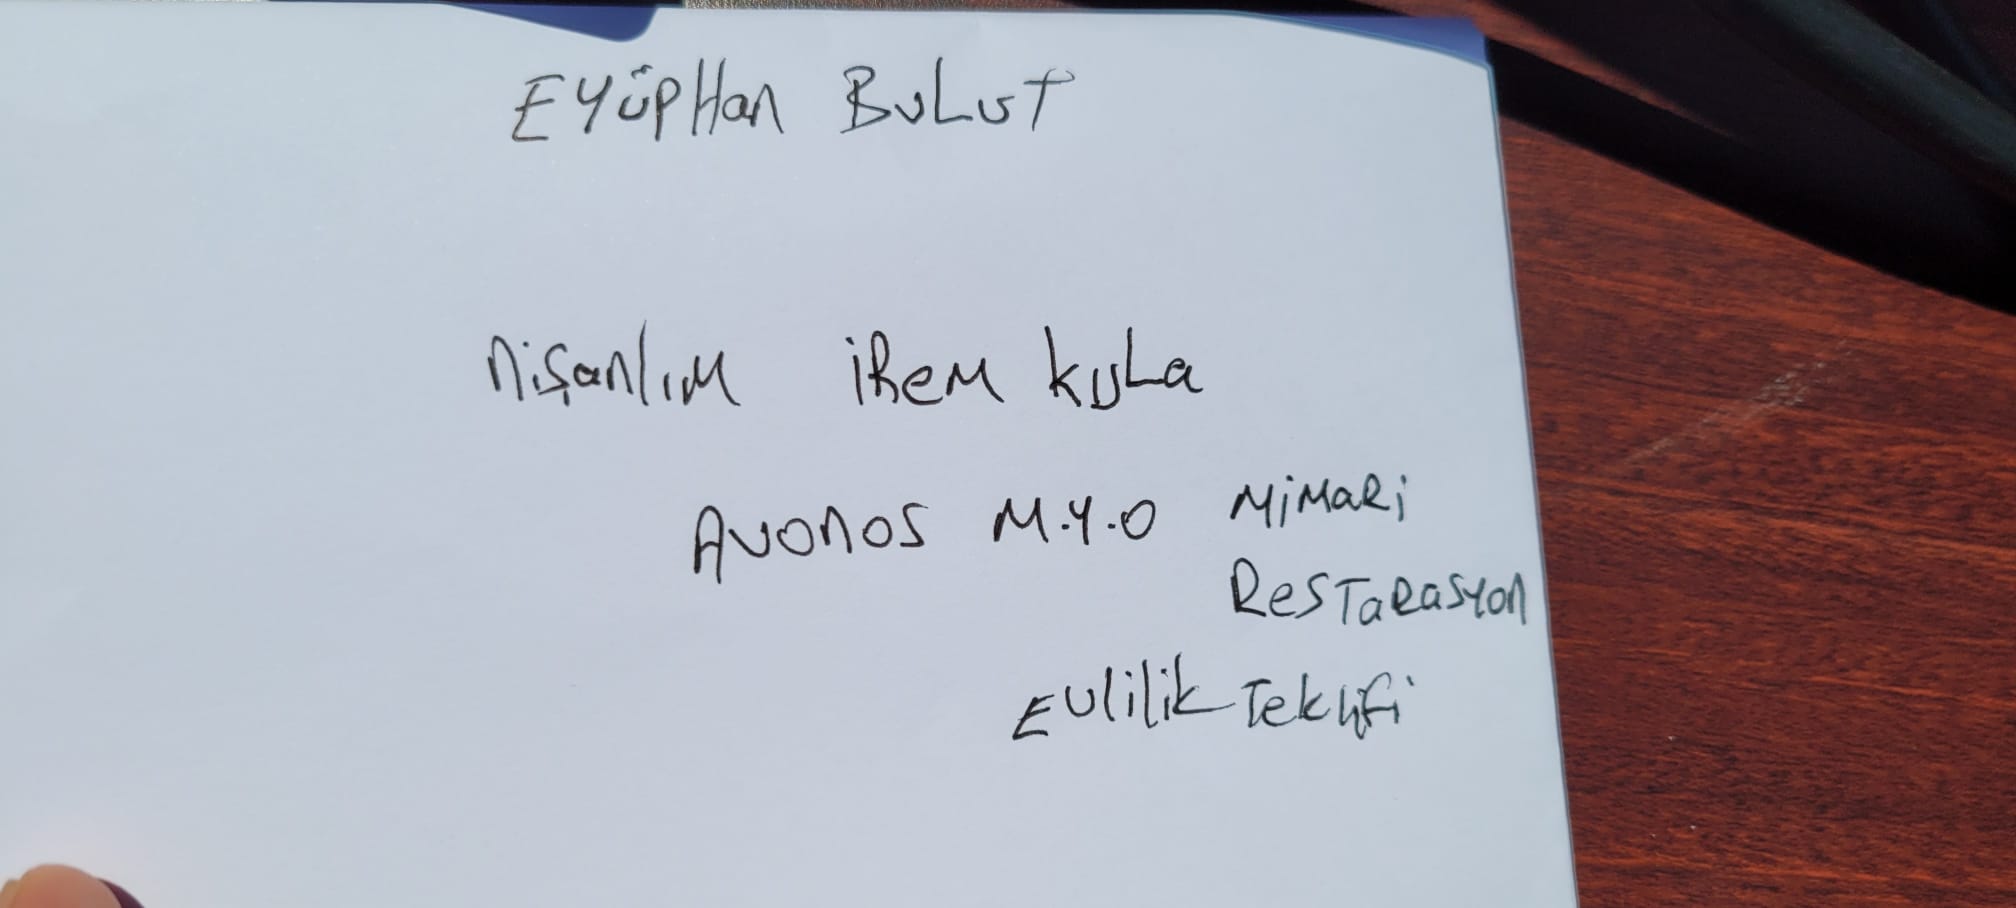 EYÜPHan BULUT
nişanlım irem kışla
Avonos M.Y.O Mimari
Restarasyon
Evlilik Teklifi